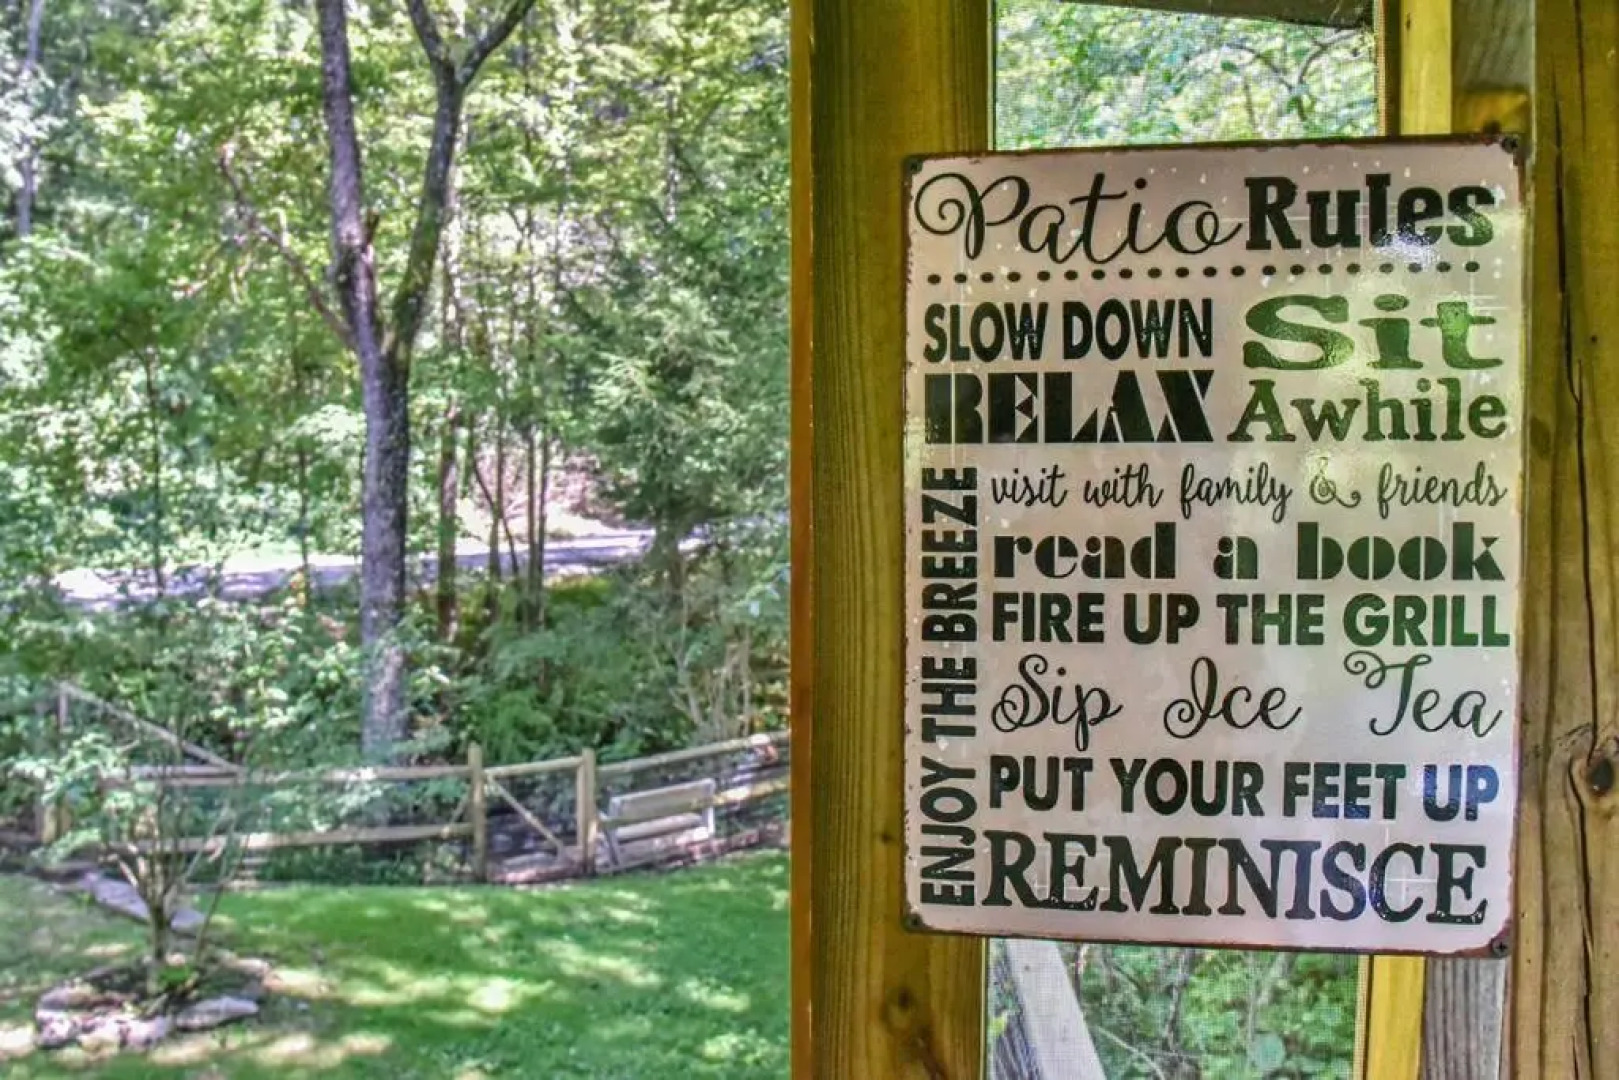 Patio Rules
SLOW DOWN Sit
RELAX Awhile
ENJOY THE BREEZE
visit with family & friends
read a book
FIRE UP THE GRILL
Sip Ice Tea
PUT YOUR FEET UP
REMINISCE